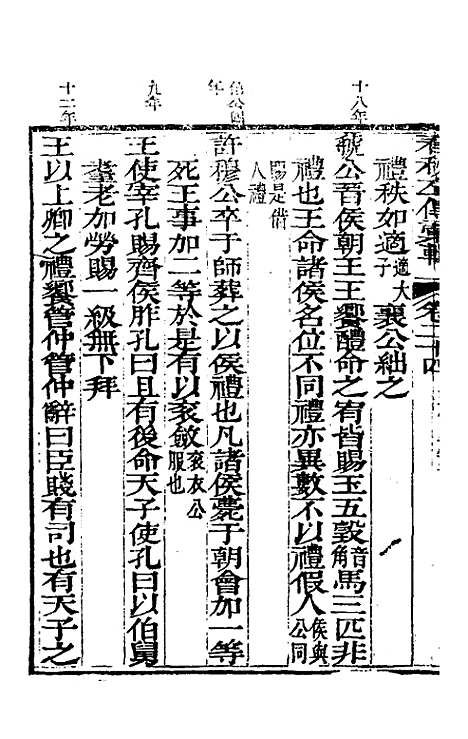 春秋左傳 卷二十四
禮秩如適適大子襄公絀之
十八年
虢公晉侯朝王王饗醴命之宥皆賜玉五瑴音角馬三匹非
禮也王命諸侯名位不同禮亦異數不以禮假人侯與公同
賜是借人禮
僖公四年
許穆公卒于師葬之以侯禮也凡諸侯薨于朝會加一等
死王事加二等於是有以袞斂袞衣公服也
九年
王使宰孔賜齊侯胙孔曰且有後命天子使孔曰以伯舅
耋老加勞賜一級無下拜
十二年
王以上卿之禮饗管仲管仲辭曰臣賤有司也有天子之